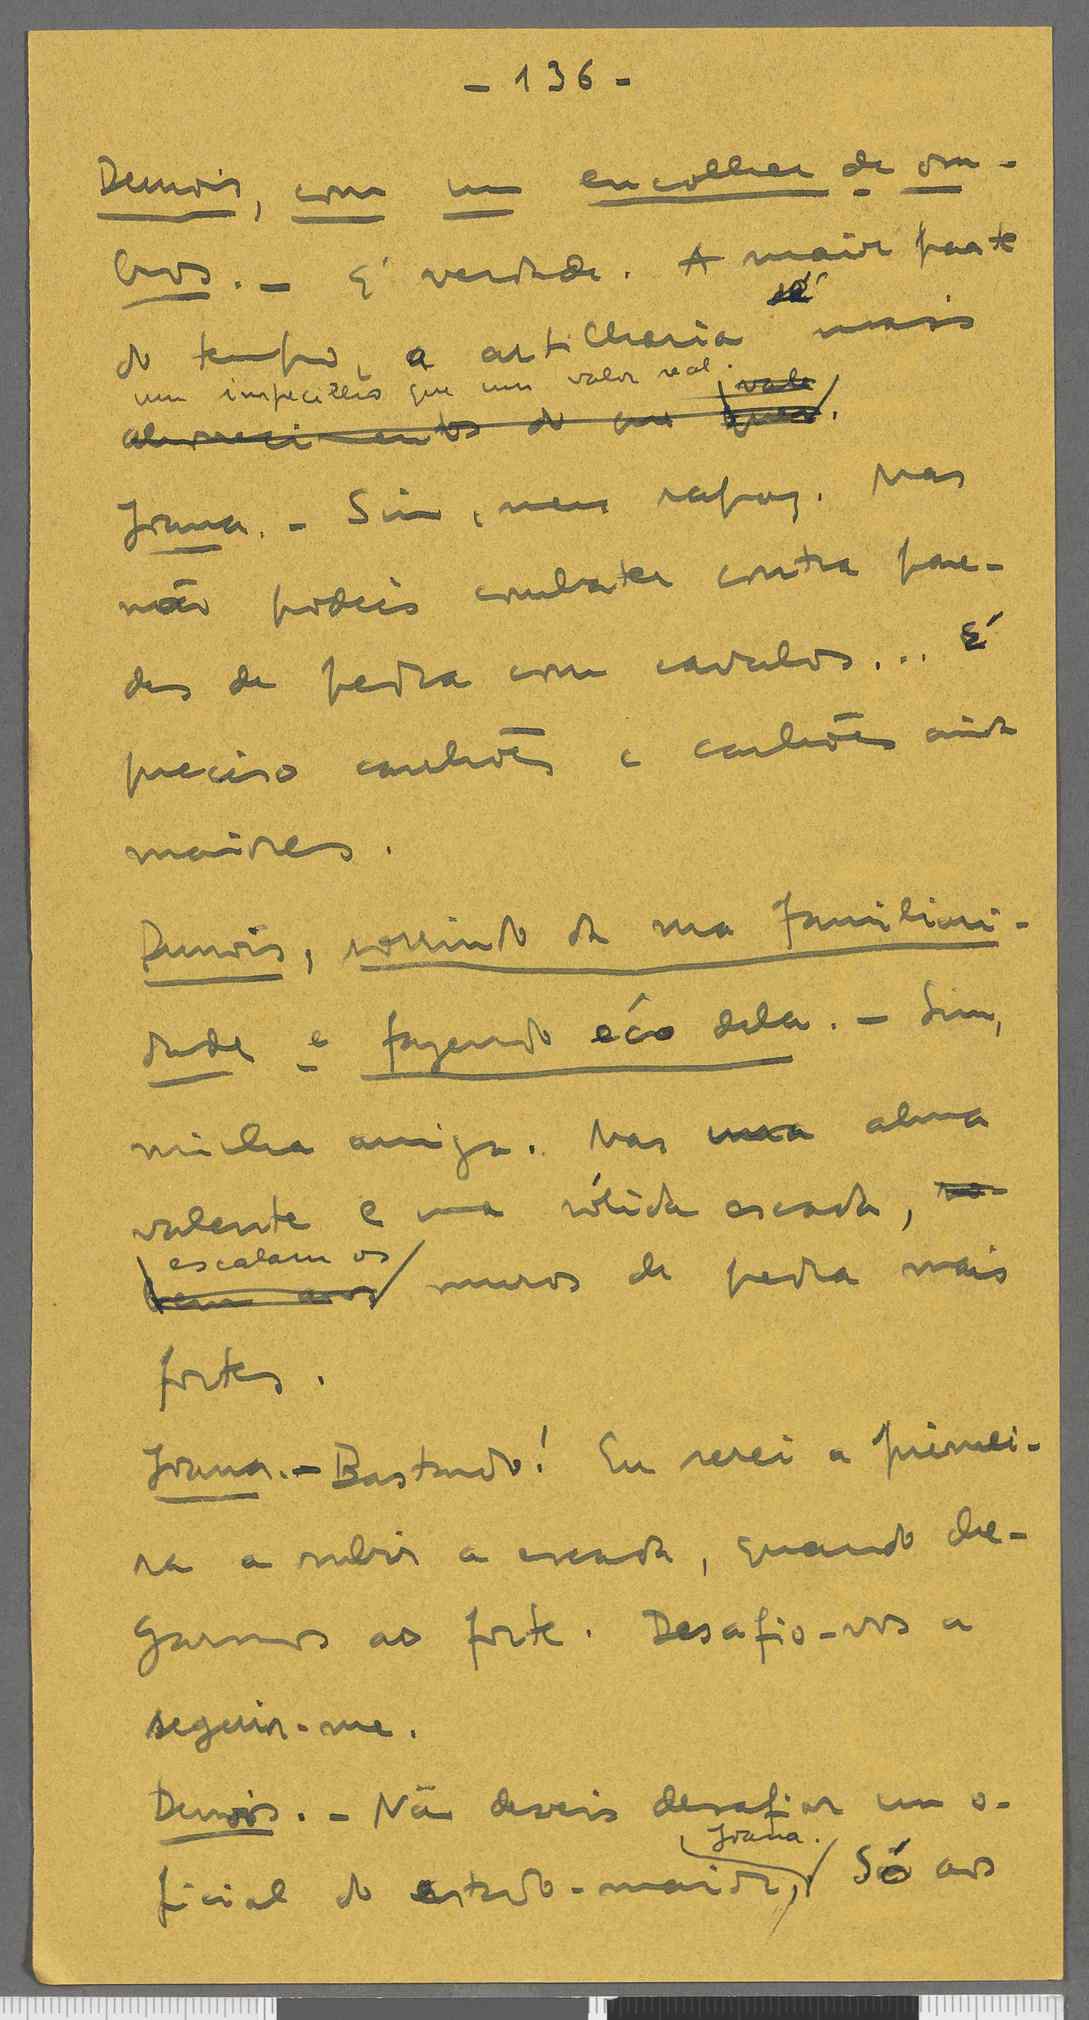 - 136 -
Dunois, com um encolher de om-
bros. - É verdade. A maior parte
é
do tempo, a artilharia mais
um impecilho que um valor real. vale
aborrecimentos do que
Joana. - Sim, meu rapaz. Mas
não podeis combater contra pare-
des de pedra com cavalos... É
preciso canhões e canhões ainda
maiores.
Dunois, sorrindo da sua familiari-
dade e fazendo éco dela. - Sim,
minha amiga. Mas uma alma
valente e uma sólida escada,
escalam os
bem aos muros de pedra mais
fortes.
Joana. - Bastardo! Eu serei a primei-
ra a subir a escada, quando che-
garmos ao forte. Desafio-vos a
seguir-me.
Dunois. - Não deveis desafiar um o-
Joana.
ficial do estado-maior, Só aos